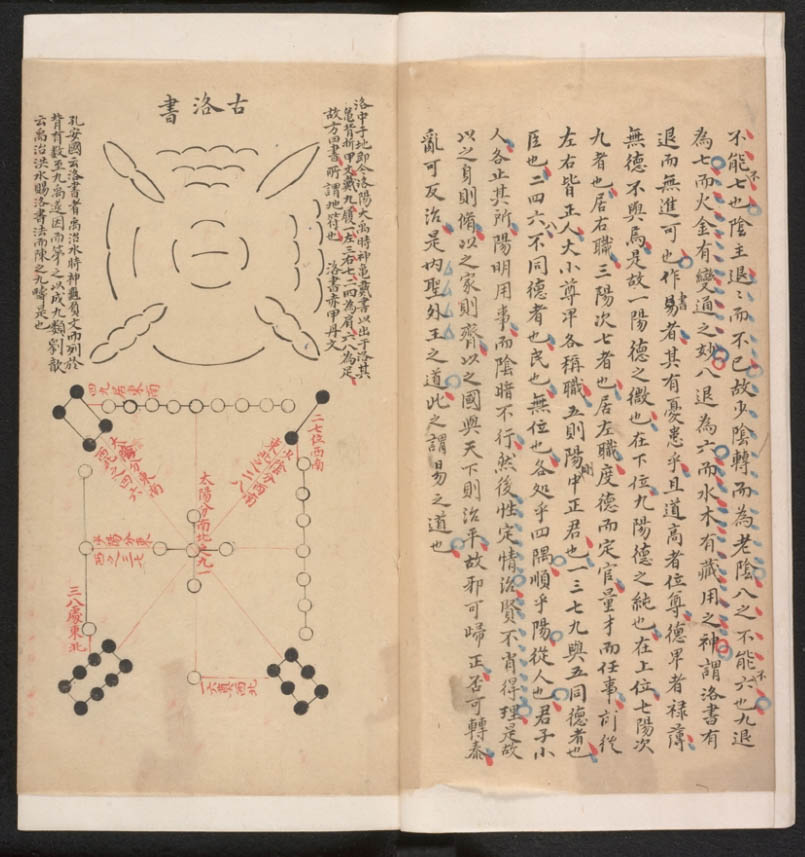 不能七也陰主退退而不已故少陰轉而為老陰八之不能六也九退
為七而火金有變通之妙八退為六而水木有藏用之神謂洛書有
退而無進可也作易者其有憂患乎且道高者位尊德卑者祿薄
無德不與焉是故一陽德之微也在下位九陽德之純也在上位七陽次
九者也居右職三陽次七者也居左職度德而定官量才而任事前從
左右皆正人大小尊卑各稱職五則陽剛中正君也一三七九與五同德者也
臣也二四六不同德者也民也無位也各処乎四隅順乎陽從人也君子小
人各止其所陽明用事而陰暗不行然後性定情治賢不肖得理是故
以之身則脩以之家則齊以之國與天下則治平故邪可歸正否可轉泰
亂可反治是內聖外王之道此之謂易之道也
古洛書
洛中子地即今洛陽大禹時神龜戴書以出于洛其
龜背折甲文戴九履一左三右七二四為肩六八為足
故方曰書所謂地符也 洛書赤甲丹文
孔安國云洛書者禹治水時神龜負文而列於
背有數至九禹遂因而第之以成九類劉歆
云禹治洪水賜洛書法而陳之九疇是也
四九居東南
二七位西南
太陽分南北之九一
少陽分東西之三七
三八處東北
一六真西北